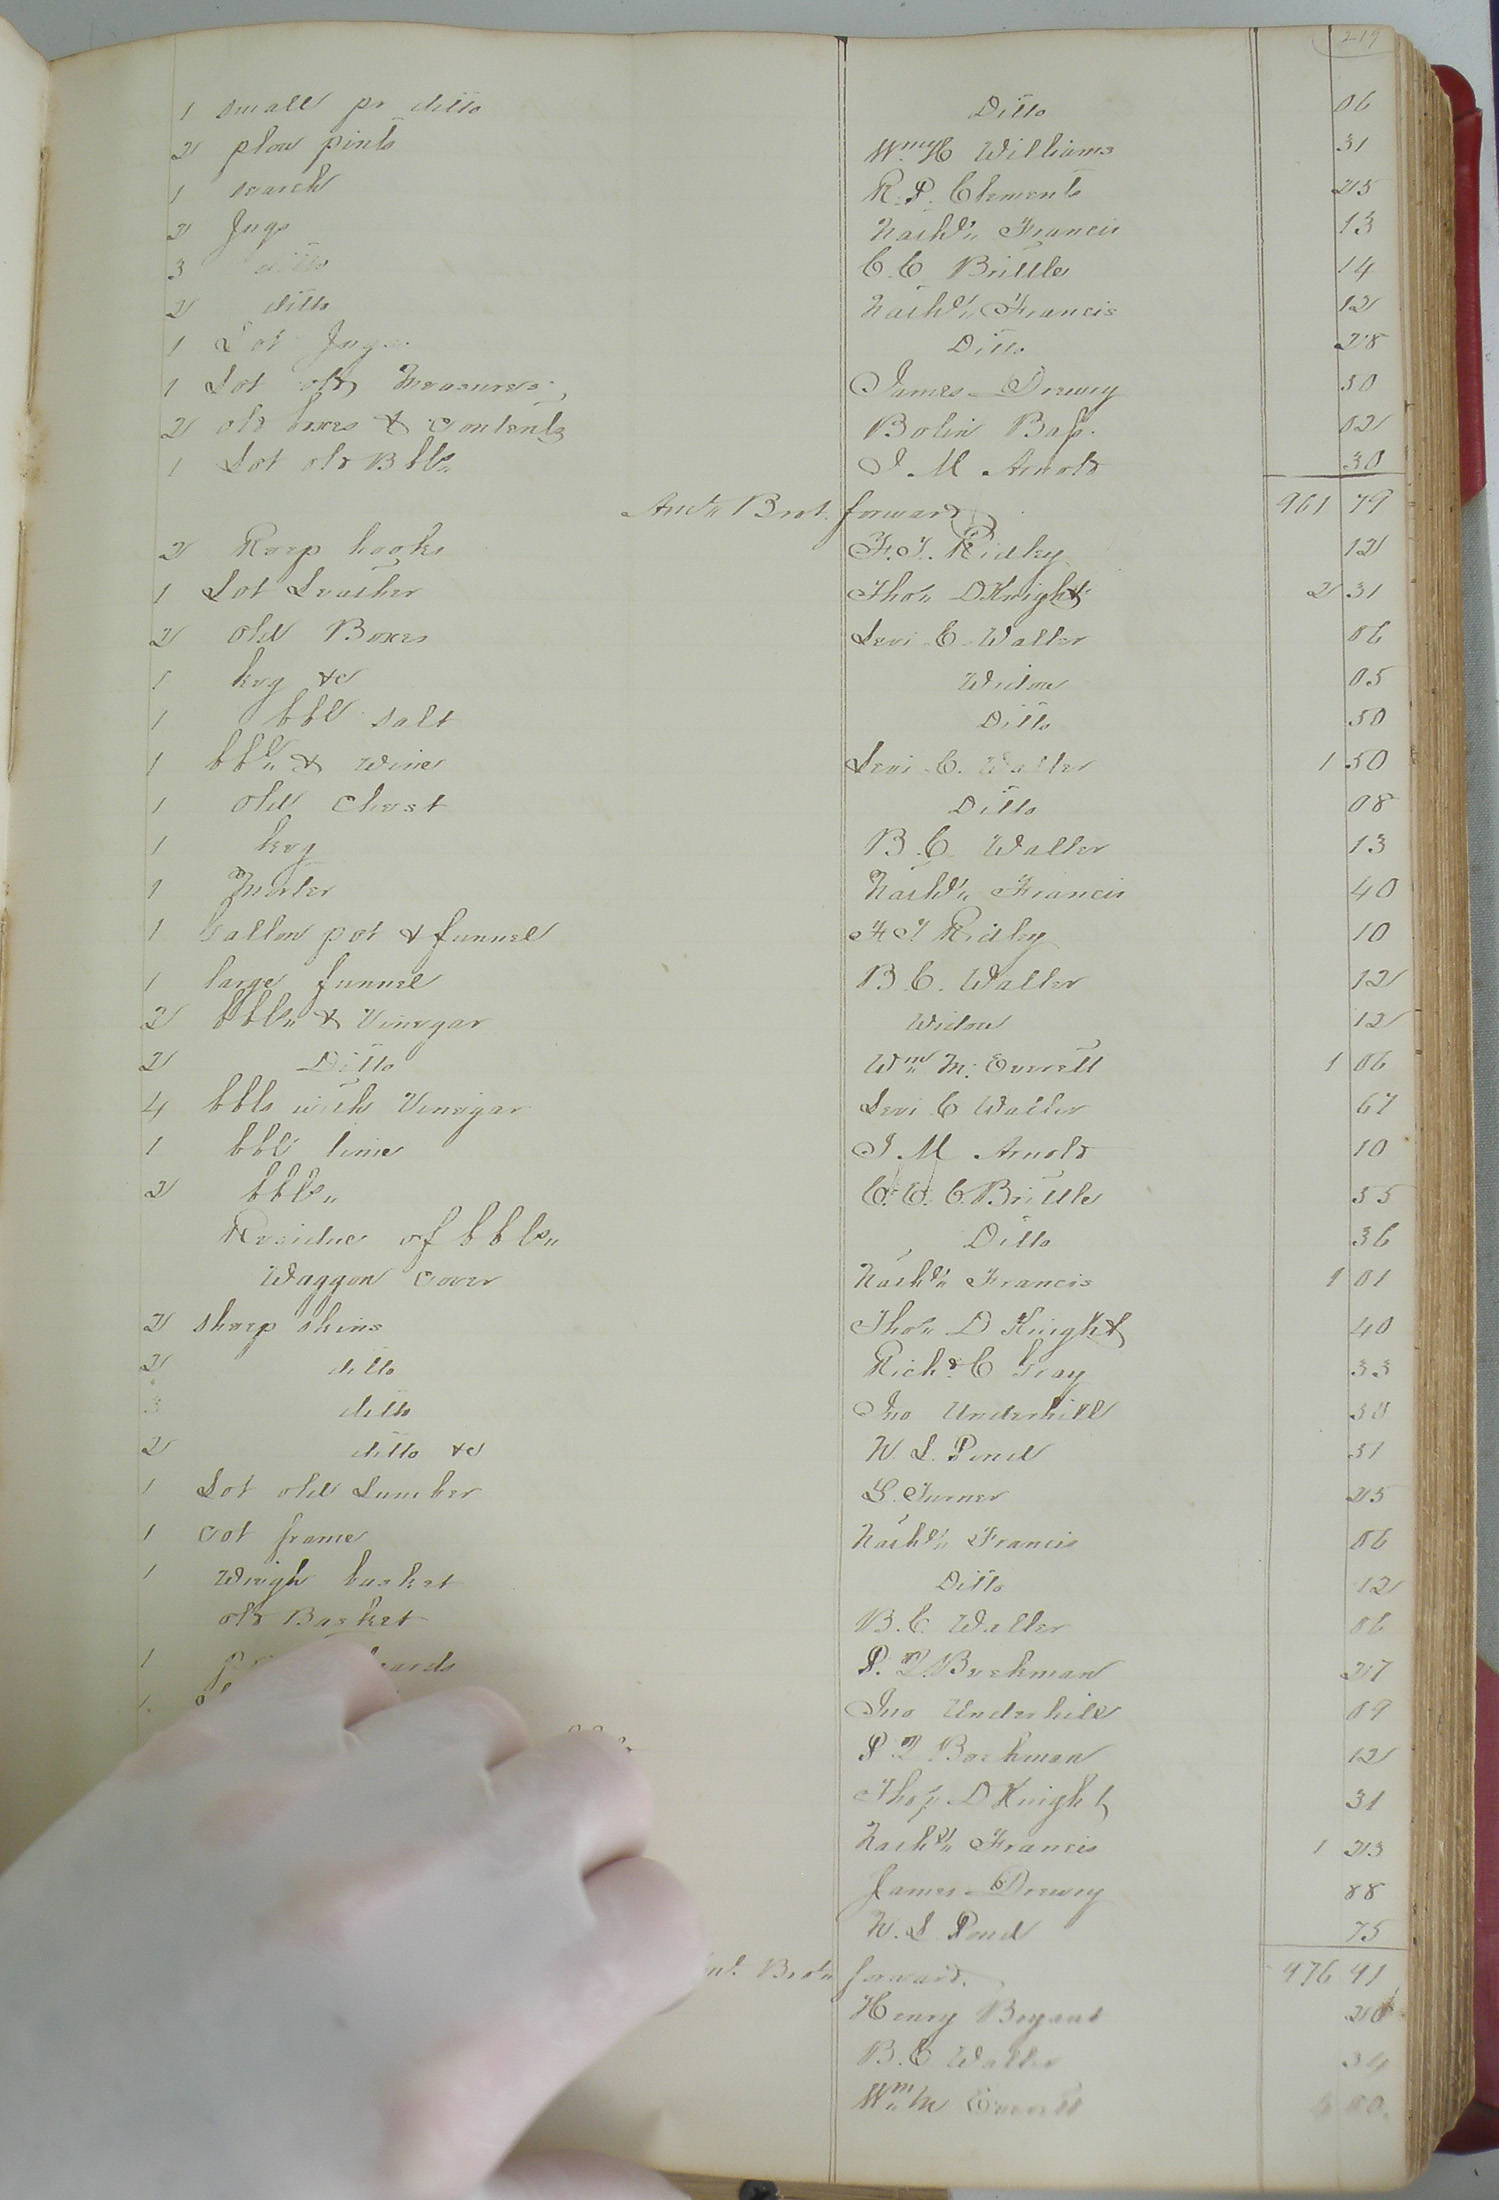 219
1 small pr ditto Ditto 06
2 plow pints Wm. H Williams 31
1 R. P. Clements 25
2 Jugs Nathl. Francis 13
3 ditto C. C. Brittle 14
2 ditto Nathl. Francis 12
1 Lot Jugs Ditto 28
1 Lot old Measures James Drewry 50
2 old boxes & contents Bolin Bass 02
1 Lot old Bbls. J. M Arnold 30
Amt. Brot. forward 461 79
2 Reep hooks F. J. Ridley 12
1 Lot Leather Thos. D Knight 2 31
2 old Boxes Levi C. Waller 06
1 keg &c Widow 05
1 bbl salt Ditto 50
1 bbl. & Wine Levi C. Waller 1 50
1 old Chest Ditto 08
1 keg B. C. Waller 13
1 Morter Nathl. Francis 40
1 Gallon pot & funnel F J Ridley 10
1 large funnel B. C. Waller 12
2 bbls. & Vinegar Widow 12
2 Ditto Wm. M. Everett 1 06
4 bbls with Vinegar Levi C Waller 67
1 bbl lime J. M Arnold 10
2 bbls. C. C. Brittle 55
Residue of bbls. Ditto 36
Waggon Cover Nathl. Francis 1 01
2 sheep skins Thos. D Knight 40
2 ditto Richd. C Gray 33
3 ditto Jno Underhill 30
2 ditto &c W. L. Pond 31
1 Lot old Lumber S. Turner 25
1 cot frame Nathl. Francis 06
1 Weigh basket Ditto 12
old Basket B. C. Waller 06
1 P. Beckman 27
1 Jno Underhill 09
P Beckman 12
Thos. D Knight 31
Nathl. Francis 1 23
James Drewry 88
W. L Pond 75
Brot. forward. 476 41
Henry Bryant 20
B. C Waller 34
Wm. M Everett